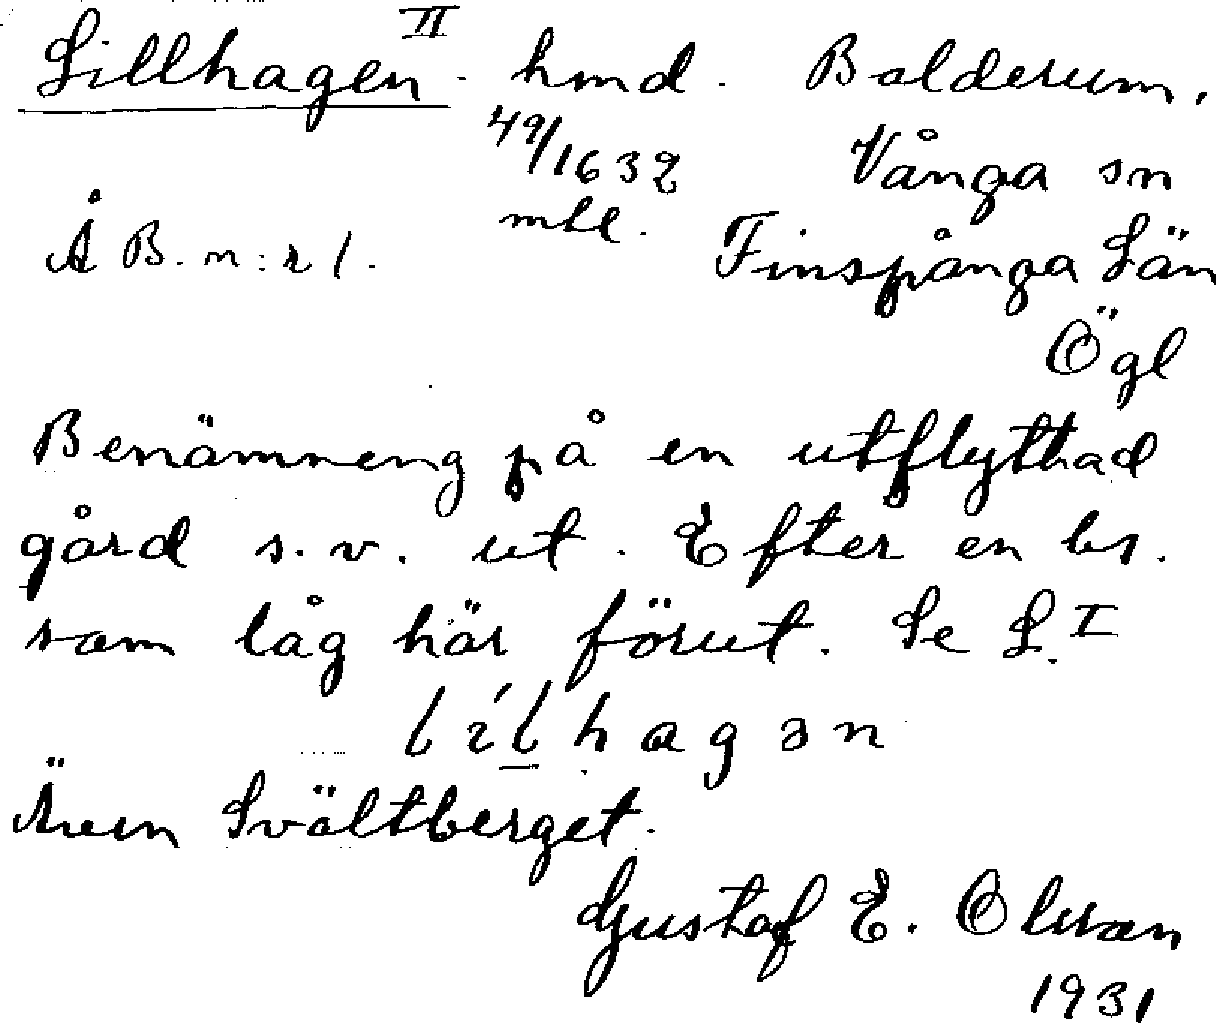 Lillhagen II. hmd. Balderum,
49/1632 Vånga sn
ÅB. n:r 1. mtl. Finspånga Län
Ögl
Benämneng på en utflyttad
gård s.v. ut. Efter en bs.
som låg här förut. Se L. I
lílhagən
Även Svältberget.
Gustaf E. Olsson
1931